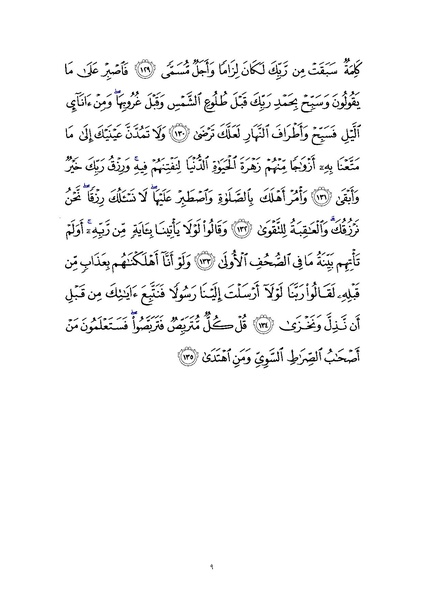 كَلِمَةٌ سَبَقَتْ مِن رَّبِّكَ لَكَانَ لِزَامًا وَأَجَلٌ مُّسَمًّى ۝١٢٩ فَاصْبِرْ عَلَىٰ مَا
يَقُولُونَ وَسَبِّحْ بِحَمْدِ رَبِّكَ قَبْلَ طُلُوعِ ٱلشَّمْسِ وَقَبْلَ غُرُوبِهَاۖ وَمِنْ ءَانَآيِٕ
ٱلَّيْلِ فَسَبِّحْ وَأَطْرَافَ ٱلنَّهَارِ لَعَلَّكَ تَرْضَىٰ ۝١٣٠ وَلَا تَمُدَّنَّ عَيْنَيْكَ إِلَىٰ مَا
مَتَّعْنَا بِهِۦٓ أَزْوَٰجًا مِّنْهُمْ زَهْرَةَ ٱلْحَيَوٰةِ ٱلدُّنْيَا لِنَفْتِنَهُمْ فِيهِۚ وَرِزْقُ رَبِّكَ خَيْرٌ
وَأَبْقَىٰ ۝١٣١ وَأْمُرْ أَهْلَكَ بِٱلصَّلَوٰةِ وَٱصْطَبِرْ عَلَيْهَاۖ لَا نَسْـَٔلُكَ رِزْقًاۖ نَّحْنُ
نَرْزُقُكَۗ وَٱلْعَـٰقِبَةُ لِلتَّقْوَىٰ ۝١٣٢ وَقَالُوا۟ لَوْلَا يَأْتِينَا بِـَٔايَةٍ مِّن رَّبِّهِۦٓۚ أَوَلَمْ
تَأْتِهِم بَيِّنَةُ مَا فِى ٱلصُّحُفِ ٱلْأُولَىٰ ۝١٣٣ وَلَوْ أَنَّآ أَهْلَكْنَـٰهُم بِعَذَابٍ مِّن
قَبْلِهِۦ لَقَالُوا۟ رَبَّنَا لَوْلَآ أَرْسَلْتَ إِلَيْنَا رَسُولًا فَنَتَّبِعَ ءَايَـٰتِكَ مِن قَبْلِ
أَن نَّذِلَّ وَنَخْزَىٰ ۝١٣٤ قُلْ كُلٌّ مُّتَرَبِّصٌ فَتَرَبَّصُوا۟ۖ فَسَتَعْلَمُونَ مَنْ
أَصْحَـٰبُ ٱلصِّرَٰطِ ٱلسَّوِىِّ وَمَنِ ٱهْتَدَىٰ ۝١٣٥
٩